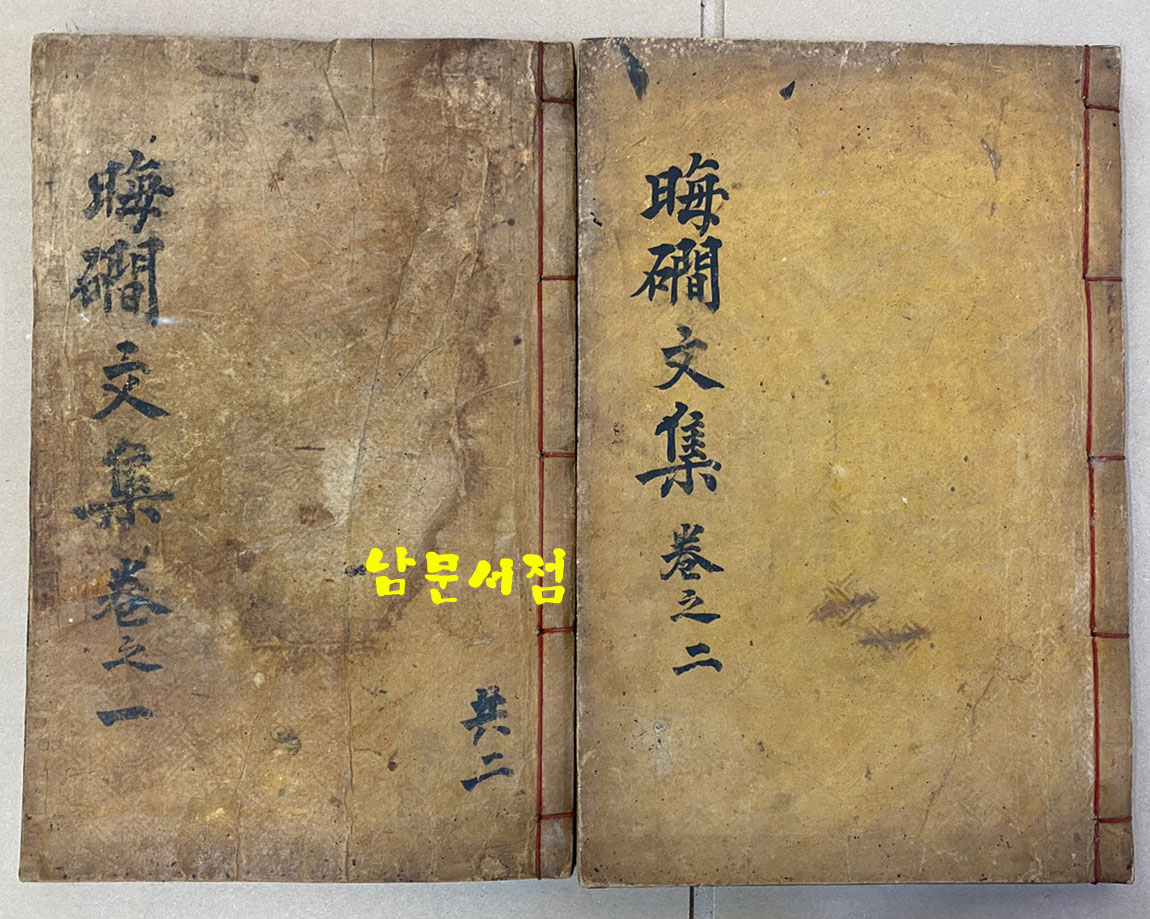 晦磵文集卷之一
共二
晦磵文集卷之二
남문서점